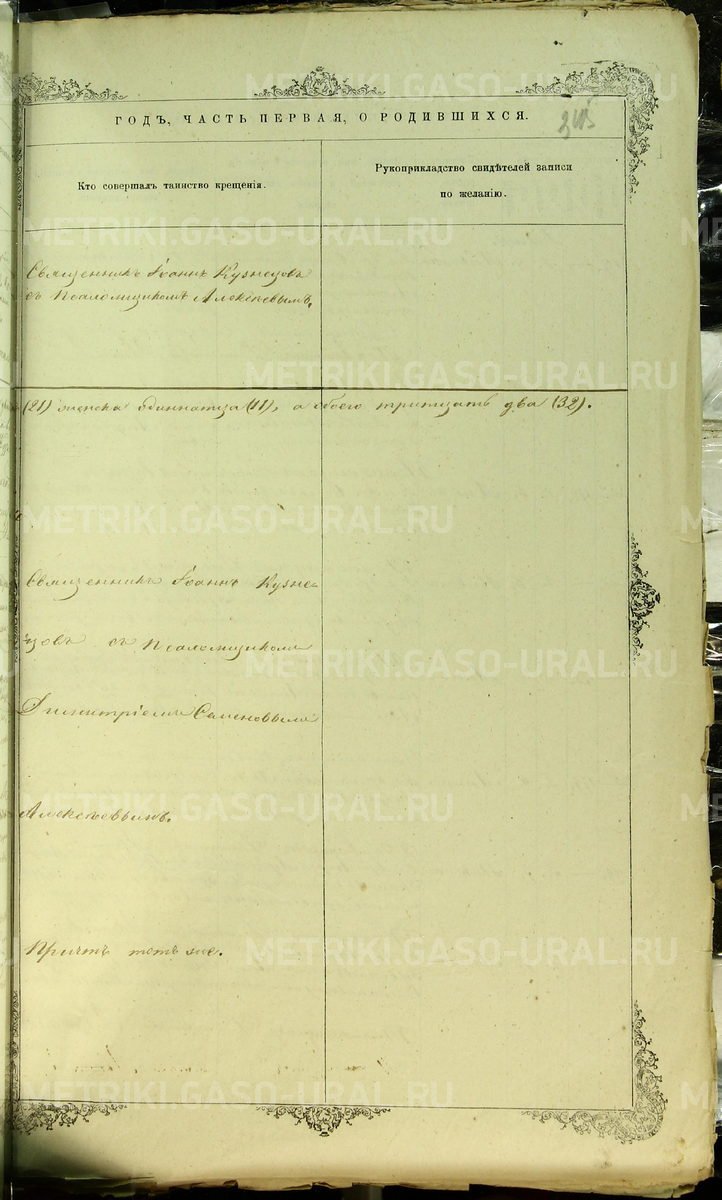 ГОДЪ, ЧАСТЬ ПЕРВАЯ, О РОДИВШИХСЯ.
Кто совершалъ таинство крещенія.
Рукоприкладство свидѣтелей записи
по желанію.
Священникъ Іоаннъ Кузнецовъ
съ Псаломщикомъ Алексѣевымъ.
(21) женска одиннатца (11), а обоего тритцать два (32).
Священникъ Іоаннъ Кузне=
цовъ съ Псаломщикомъ
Димитріемъ Семеновымъ
Алексѣевымъ.
Причтъ тотъ же.
METRIKI.GASO-URAL.RU